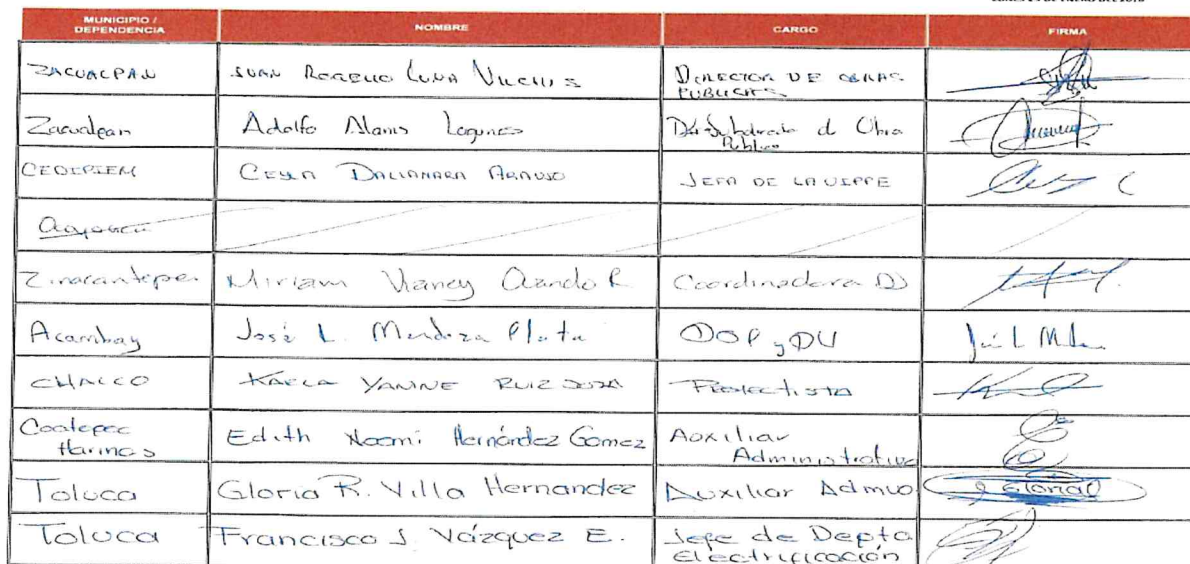 MUNICIPIO / DEPENDENCIA NOMBRE CARGO FIRMA
ZACUALPAN JUAN ROGELIO LUNA VILCHIS DIRECTOR DE OBRAS PUBLICAS
Zacualpan Adolfo Alanis Lagunas d Obra Publica
CEDIPIEM CELIA DALIANARA ARAUJO JEFA DE LA UIPPE
Zinacantepec Miriam Vianey R. Coordinadora D)
Acambay José L. Mendoza Plata DOP y DU
CHALCO KARLA YANINE RUIZ SOSA PROYECTISTA
Coatepec Harinas Edith Noemi Hernández Gomez Auxiliar Administrativo
Toluca Gloria R. Villa Hernandez Auxiliar Admvo
Toluca Francisco J. Vázquez E. Jefe de Depto Electrificación